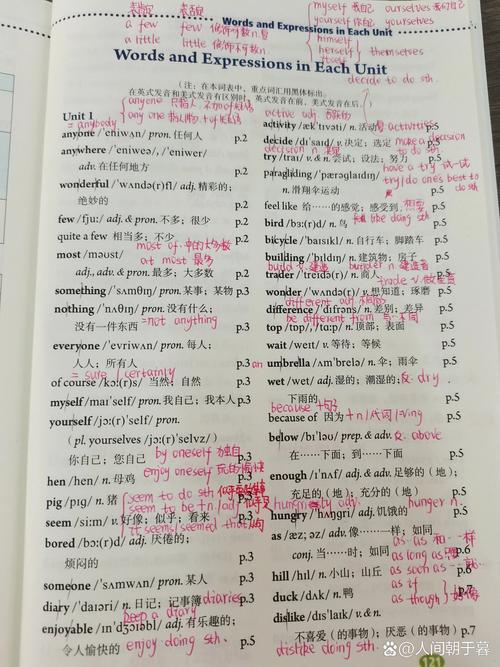 表肯定 表否定
a few few 修饰可数n.复
a little little 修饰不可数n.
myself 我自己 ourselves 我们自己
yourself 你自己 yourselves
himself
herself themselves
itself
Words and Expressions in Each Unit
Words and Expressions in Each Unit
decide to do sth.
(注：在本词表中，重点词汇用黑体标出。
在英式发音和美式发音有区别时，英式发音在前，美式发音在后。)
Unit 1
= anybody
anyone /'eniwʌn/ pron. 任何人 p.2
anywhere /'eniweə/, /'eniwer/
adv. 在任何地方 p.2
wonderful /'wʌndə(r)fl/ adj. 精彩的；
绝妙的 p.2
few /fjuː/ adj. & pron. 不多；很少 p.2
quite a few 相当多；不少 p.2
most of 中的大多数
at most 最多
most /məʊst/
adj., adv. & pron. 最多；大多数 p.2
something /'sʌmθɪŋ/ pron. 某事；某物 p.3
nothing /'nʌθɪŋ/ pron. 没有什么；
没有一件东西 =not anything p.3
everyone /'evriwʌn/ pron. 每人；
人人；所有人 p.3
= sure / certainly
of course /kɔː(r)s/ 当然；自然 p.3
myself /maɪ'self/ pron. 我自己；我本人 p.3
yourself /jɔː(r)'self/ pron.
(pl. yourselves /jɔː(r)'selvz/)
你自己；您自己 p.3
by oneself 独自
enjoy oneself 玩的愉快
hen /hen/ n. 母鸡 p.3
pig /pɪg/ n. 猪
seem to do sth
seem /siːm/ v. 好像；似乎；看来 p.3
bored /bɔː(r)d/ adj. 厌倦的；
烦闷的 p.3
someone /'sʌmwʌn/ pron. 某人 p.3
diary /'daɪəri/ n. 日记；记事簿 diaries p.3
keep a diary
enjoyable /ɪn'dʒɔɪəbl/ adj. 有乐趣的；
令人愉快的 enjoy doing sth. p.5
active adj. 活跃的
activity /æk'tɪvəti/ n. 活动 activities p.5
decide /dɪ'saɪd/ v. 决定；选定 make a decision p.5
decision n. 决定 to do sth
try /traɪ/ v. & n. 尝试；设法；努力 p.5
have a try 试一试
paragliding /'pærəglaɪdɪŋ/ try/do one's best to
n. 滑翔伞运动 do sth p.5
feel like 给……的感觉；感受到 p.5
feel like doing sth
bird /bɜː(r)d/ n. 鸟 p.5
bicycle /'baɪsɪkl/ n. 自行车；脚踏车 p.5
building /'bɪldɪŋ/ n. 建筑物；房子 p.5
build v. 建造 builder n. 建造者
trader /'treɪdə(r)/ n. 商人 p.5
trade v. 做生意
wonder /'wʌndə(r)/ v. 想知道；琢磨 p.5
different adj. 不同的
difference /'dɪfrəns/ n. 差别；差异 p.5
be different from 与…不同
top /tɒp/, /tɑːp/ n. 顶部；表面 p.5
wait /weɪt/ v. 等待；等候 p.5
an umbrella /ʌm'brelə/ n. 伞；雨伞 p.5
wet /wet/ adj. 湿的；潮湿的； 反. dry.
下雨的 p.5
because +句子
because of 因为 +n/代词/Ving p.5
below /bɪ'ləʊ/ prep. & adv. 反. above
在……下面；到……下面 p.5
enough /ɪ'nʌf/ adj. & adv. 足够的（地）；
充足的（地）；充分的（地） p.5
hunger n.
hungry /'hʌŋgri/ adj. 饥饿的 p.5
as /æz; əz/ adv. 像……一样；如同
conj. 当……时；如同 p.6
as…as 和…一样
as long as
hill /hɪl/ n. 小山；山丘 as soon as p.6
as if
duck /dʌk/ n. 鸭 as though p.7
dislike /dɪs'laɪk/ v. & n.
不喜爱（的事物）；厌恶（的事物） p.7
dislike doing sth.
121
@人间朝于暮